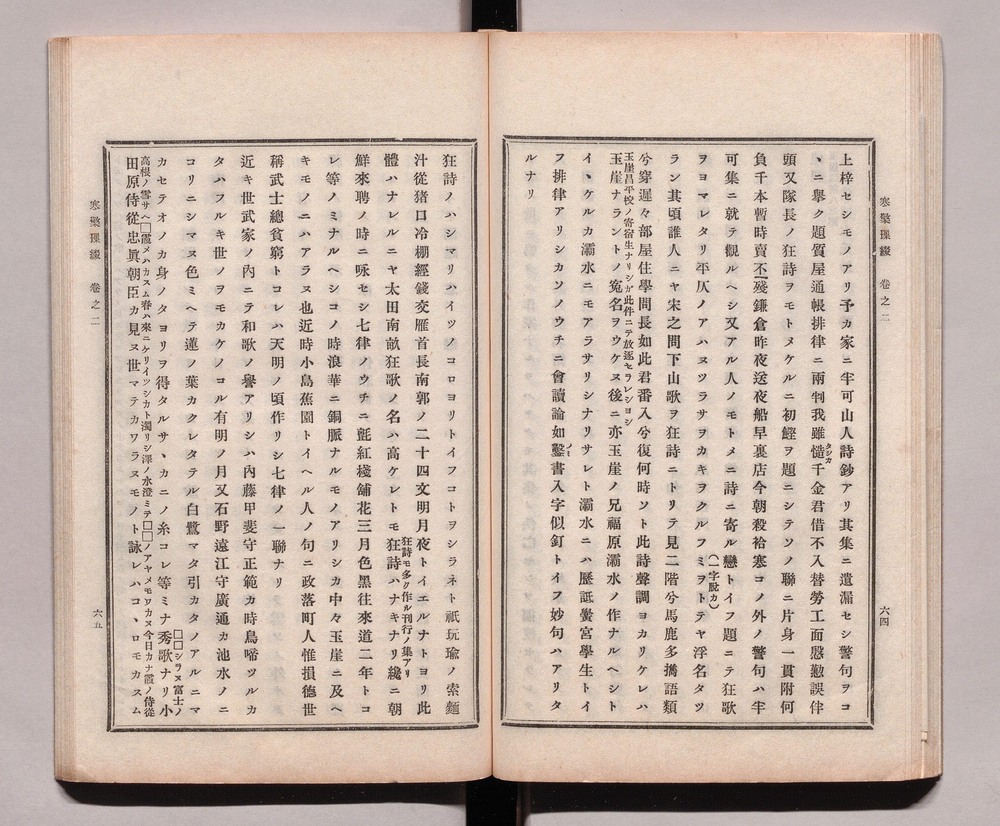 寒檠璅綴 卷之二
六四
上梓セシモノアリ予カ家ニ半可山人詩鈔アリ其集ニ遺漏セシ警句ヲコ
ヽニ擧ク題質屋通帳排律ニ兩判我雖慥千金君借不入替勞工面慇懃誤伴
タシカ
頭又隊長ノ狂詩ヲモトヌケルニ初鰹ヲ題ニシテソノ聯ニ片身一貫附何
負千本暫時賣不殘鎌倉昨夜送夜船早裏店今朝殺袷寒コノ外ノ警句ハ半
可集ニ就テ觀ルヘシ又アル人ノモトメニ詩ニ寄ル戀トイフ題ニテ狂歌
ヲヨマレタリ平仄ノアハヌツラサヲカキヲクルフミヲトテヤ浮名タツ
(一字脫カ)
ラン其頃誰人ニヤ宋之問下山歌ヲ狂詩ニトリテ見二階兮馬鹿多擕語類
兮穿遲々部屋住學問長如此君番入兮復何時ント此詩聲調ヨカリケレハ
玉崖昌平校ノ寄宿生ナリシガ此件ニテ放逐セラレシヨシ
玉崖ナラントノ寃名ヲウケヌ後ニ亦玉崖ノ兄福原灞水ノ作ナルヘシト
イヽケルカ灞水ニモアラサリシナリサレト灞水ニハ歷詆黌宮學生トイ
フ排律アリシカソノウチニ會讀論如鑿書入字似釘トイフ妙句ハアリタ
ノミ
ルナリ
寒檠璅綴 卷之二
六五
狂詩ノハシマリハイツノコロヨリトイフコトヲシラネト祇玩瑜ノ索麵
汁從猪口冷棚經錢交雁首長南郭ノ二十四文明月夜トイエルナトヨリ此
體ハナレルニヤ太田南畝狂歌ノ名ハ高ケレトモ狂詩ハナキナリ纔ニ朝
狂詩モ多ク作ル刊行ノ集アリ
鮮來聘ノ時ニ咏セシ七律ノウチニ氈紅棧舖花三月色黑往來道二年トコ
レ等ノミナルヘシコノ時浪華ニ銅脈ナルモノアリシカ中々玉崖ニ及ヘ
キモノニハアラヌ也近時小島蕉園トイヘル人ノ句ニ政落町人惟損德世
稱武士總貧窮トコレハ天明ノ頃作リシ七律ノ一聯ナリ
近キ世武家ノ內ニテ和歌ノ譽アリシハ內藤甲斐守正範カ時鳥啼ツルカ
タハフルキ世ノヲモカケノコル有明ノ月又石野遠江守廣通カ池水ノニ
コリニシマヌ色ミヘテ蓮ノ葉カクレタテル白鷺マタ引カタノアルニマ
カセテオノカ身ノタヨリヲ得タルサヽカニノ糸コレ等ミナ秀歌ナリ小
□□シラヌ富士ノ
高根ノ雪サヘ□霞メハカスム春ハ來ニケリイツシカト濁リシ澤ノ水澄ミテ□□ノアヤメモワカヌ今日カナ霞ノ侍從
田原侍從忠眞朝臣カ見ヌ世マテカワラヌモノト詠レハコヽロモカスム